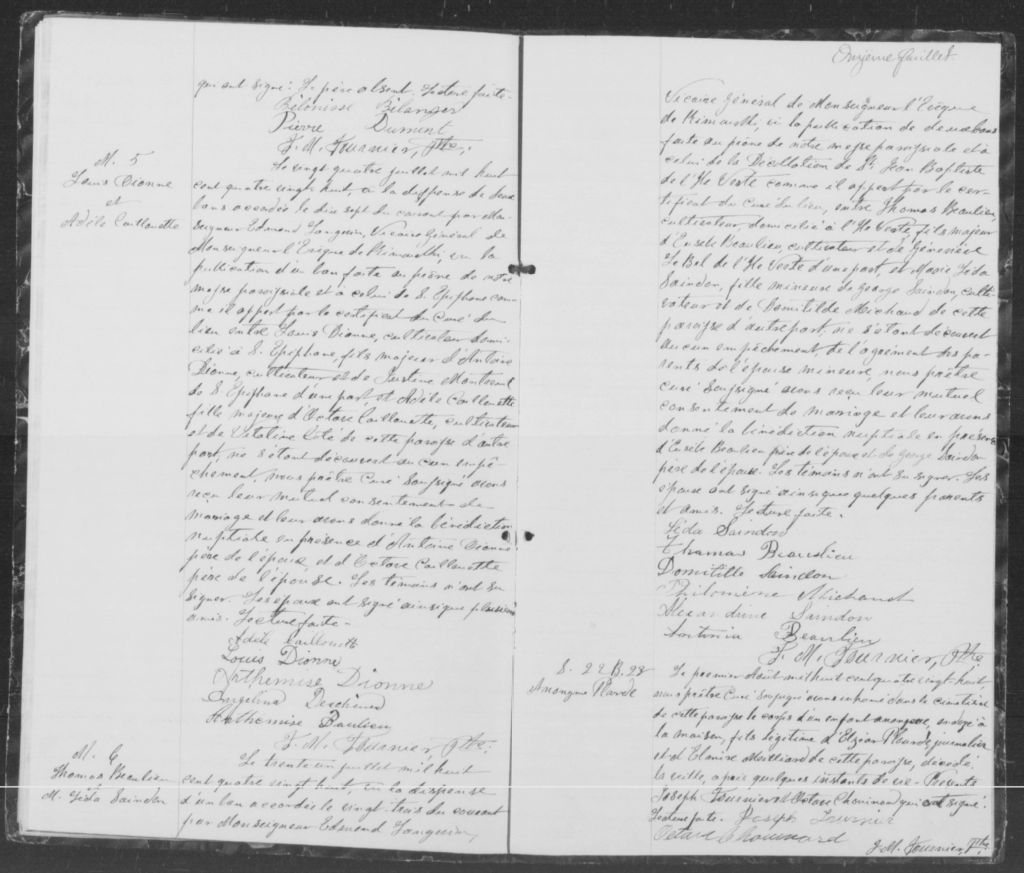 qui ont signé. Le père absent. Lecture faite.
Bélonisse Bélanger
Pierre Dumont
J. M. Fournier, Ptre.
M. 5
Louis Dionne
et
Adèle Caillouette
Le vingt quatre juillet mil huit
cent quatre vingt huit, vu la dispense de deux
bans accordée le dix sept du courant par Mon-
seigneur Edmond Langevin, Vicaire Général de
Monseigneur l'Evêque de Rimouski, vu la
publication d'un ban faite au prône de notre
messe paroissiale et à celui de S. Epiphane com-
me il appert par le certificat du Curé du
lieu entre Louis Dionne, cultivateur domi-
cilié à S. Epiphane, fils majeur d'Antoine
Dionne, cultivateur et de Justine Montreuil
de S. Epiphane d'une part, et Adèle Caillouette
fille majeure d'Octave Caillouette, cultivateur
et de Vitaline Côté de cette paroisse d'autre
part, ne s'étant découvert aucun empê-
chement, nous prêtre Curé soussigné avons
reçu leur mutuel consentement de
mariage et leur avons donné la bénédiction
nuptiale en présence d'Antoine Dionne
père de l'époux et d'Octave Caillouette
père de l'épouse. Les témoins n'ont su
signer. Les époux ont signé ainsi que plusieurs
amis. Lecture faite.
Adèle Caillouette
Louis Dionne
Arthemise Dionne
Angelina
Arthemise Baulieu
J. M. Fournier Ptre.
M. 6
Thomas Beaulieu
M. Léda Saindon
Le trente un juillet mil huit
cent quatre vingt huit, vu la dispense
d'un ban accordée le vingt-trois du courant
par Monseigneur Edmond Langevin,
Onzième feuillet.
Vicaire Général de Monseigneur l'Evêque
de Rimouski, vu la publication de deux bans
faite au prône de notre messe paroissiale et à
celui de la Décollation de St Jean Baptiste
de l'Ile Verte comme il appert par le cer-
tificat du Curé du lieu, entre Thomas Beaulieu,
cultivateur, domicilié à l'Ile Verte, fils majeur
d'Eusèbe Beaulieu, cultivateur et de Geneviève
Le Bel de l'Ile Verte d'une part, et Marie Léda
Saindon, fille mineure de George Saindon, culti-
vateur et de Domitilde Michaud de cette
paroisse d'autre part, ne s'étant découvert
aucun empêchement, de l'agrément des pa-
rents de l'épouse mineure, nous prêtre
curé soussigné avons reçu leur mutuel
consentement de mariage et leur avons
donné la bénédiction nuptiale en présence
d'Eusèbe Beaulieu père de l'époux et de George Saindon
père de l'épouse. Les témoins n'ont su signer. Les
époux ont signé ainsi que quelques parents
et amis. Lecture faite.
Léda Saindon
Thomas Beaulieu
Domitille Saindon
Philomène Michaud
Alexandrine Saindon
Antonia Beaulieu
J. M. Fournier, Ptre
S. 22 B. 28
Anonyme Plourde
Le premier Août mil huit cent quatre vingt huit,
nous prêtre Curé soussigné avons inhumé dans le cimetière
de cette paroisse le corps d'un enfant anonyme, ondoyé à
la maison, fils légitime d'Elzéar Plourde, journalier
et d'Elmire de cette paroisse, décédé
la veille, après quelques instants de vie. Présents
Joseph Fournier et Octave Chouinard qui ont signé.
Lecture faite. Joseph Fournier
Octave Chouinard
J. M. Fournier, Ptre.